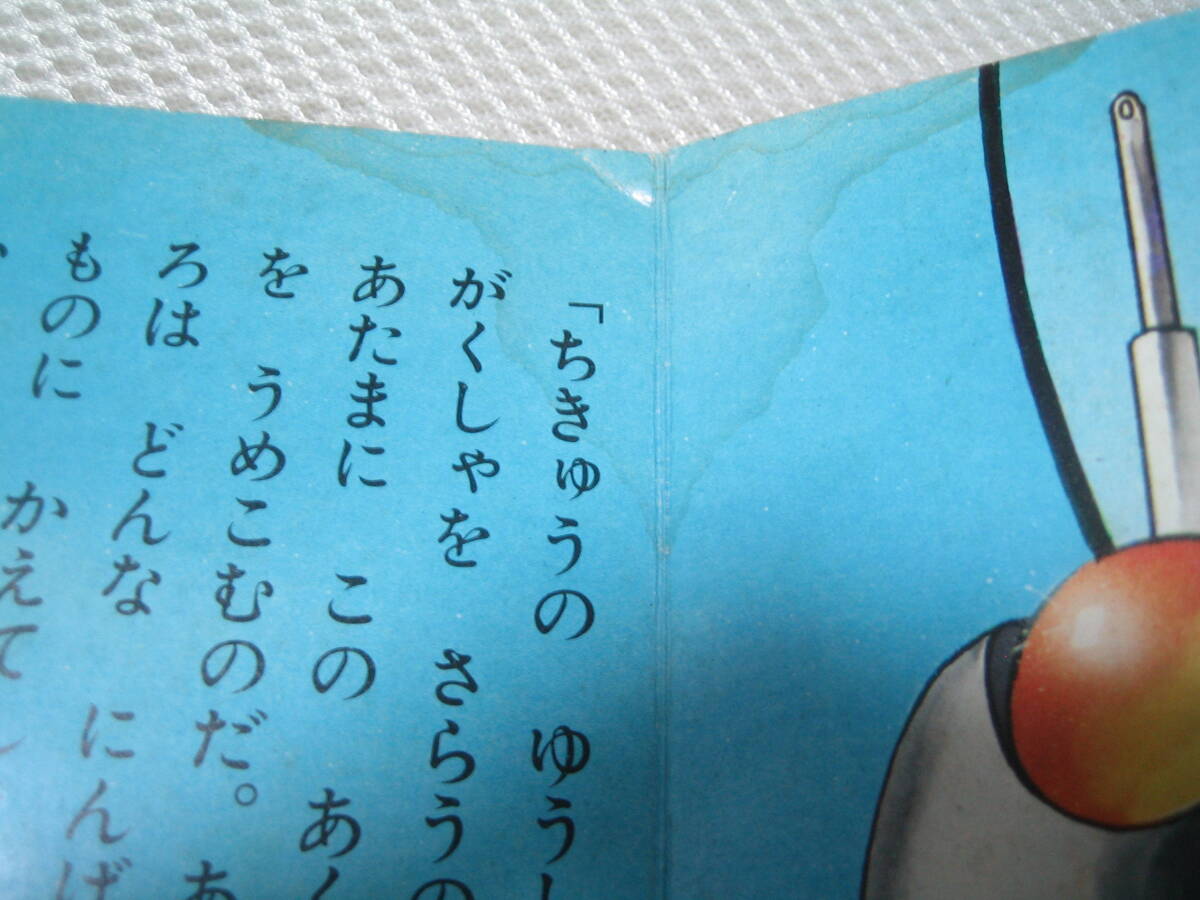 「ちきゅうの　ゆうし
がくしゃを　さらうの
あたまに　この　あく
を　うめこむのだ。　あ
ろは　どんな　にんげ
ものに　かえてし